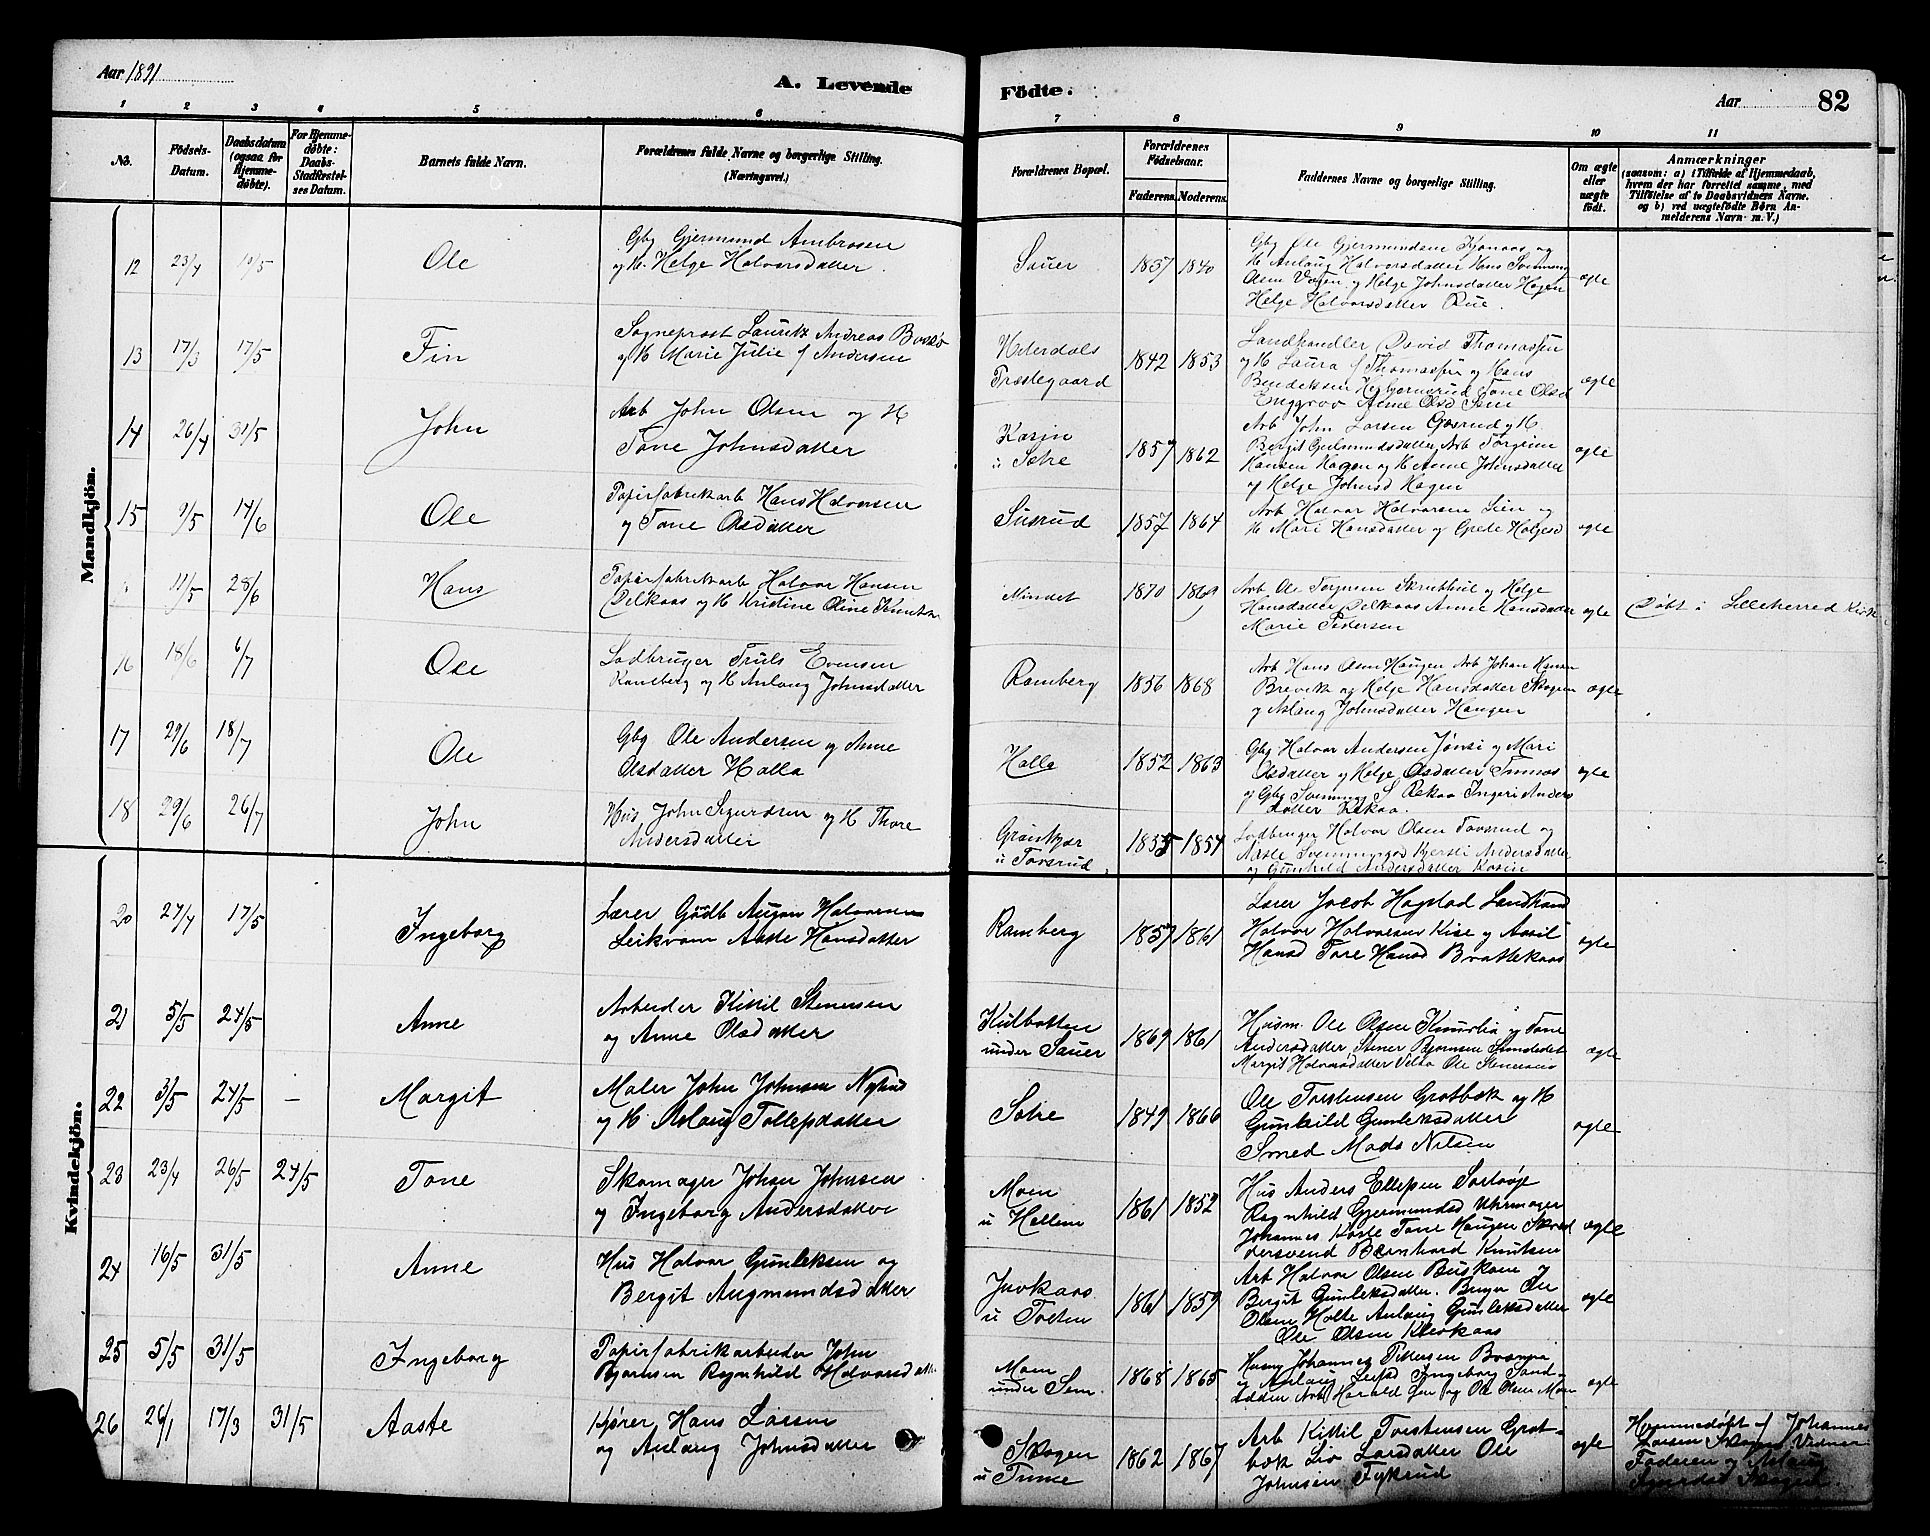 Aar 1891
A. Levende
Födte.
Aar
82
1 2 3 4 5 6 7 8 9 10 11
No.
Födsels-
Datum.
Daabsdatum
(ogsaa for
Hjemme-
döbte).
For Hjemme-
döbte:
Daabs-
Stadfæstel-
ses Datum.
Barnets fulde Navn.
Forældrenes fulde Navne og borgerlige Stilling.
(Næringsvei.)
Forældrenes Bopæl.
Forældrenes
Födselsaar.
Faderens. Moderens.
Faddernes Navne og borgerlige Stilling.
Om ægte
eller
uægte
födt.
Anmærkninger
(saasom: a) i Tilfælde af Hjemmedaab,
hvem der har forrettet samme, med
Tilföielse af to Daabsvidners Navne.
og b) ved uægtefödte Börn An-
melderens Navn m. V.)
Mandkjön.
12 23/4 10/5 Ole
Gbg Gjermund Ambrosen
og H. Helge Halvorsdatter.
Sauer 1837 1840
Gbg Ole Gjermundsen og
H Anlaug Halvorsdatter Hans
Olsen og Helge Johnsdatter Hagen
Helge Halvorsdatter Rue.
ægte
13 17/3 17/5 Fin
Sogneprost Lauritz Andreas
og H Marie Julie f Andersen
Hiterdals
Præstegaard
1842 1853
Landhandler David Thomassen
og H Laura f Thomassen og Hans
Bendiksen Tone Olsd
Enggrav Anne Olsd Sem
ægte
14 26/4 31/5 John
Arb John Olsen og H
Tone Johnsdatter
Kasin
u Sotre
1857 1862
Arb John Larsen og H.
Bergit Arb Torgeim
Hansen Hagen og H Anne Johnsdatter
og Helge Johnsd Hagen
ægte
15 9/5 14/6 Ole
Papirfabrikarb Hans Halvorsen
og Tone Olsdatter
Susrud 1857 1864
Arb Halvor Halvorsen Lien og
H Mari Hansdatter og Grete
ægte
11/5 28/6 Hans
Papirfabrikarb Halvor Hansen
og H Kristine Oline
Mindet 1870 1869
Arb Ole og Helge
Hansdatter Anne Hansdatter
Marie Pedersen
ægte
Døbt i Lilleherred Kirke
16 18/6 6/7 Ole
Lodbruger Truls Evensen
Ramberg og H Anlaug Johnsdatter
Ramberg 1856 1868
Arb Hans Olsen Haugen Arb Johan Hansen
Brevik og Helge Hansdatter Skogen
og Aslaug Johnsdatter Haugen
ægte
17 29/6 18/7 Ole
Gbg Ole Andersen og Anne
Olsdatter Holla
Holle 1852 1863
Gbg Halvor Andersen og Mari
Olsdatter og Helge Olsdatter
og Gbg Svenning S Ingeri Anders
datter
ægte
18 29/6 26/7 John
Hus John Sigurdsen og H Thore
Andersdatter
u Tovsrud
1855 1854
Lodbruger Halvor Olsen Tovsrud og
Aaste Kjersti Andersdatter
og Gunhild Andersdatter Kasin
Kvindekjön.
20 27/4 17/5 Ingeborg
Lærer Gaardb Augon Halvorsen
Leikvam Aaste Hansdatter
Ramberg 1857 1861
Lærer Jacob Hogstad Landhand
Halvor Halvorsen Kise og Aasil
Hansd Tone Hansd Brattekaas
ægte
21 5/5 24/5 Anne
Arbeider Kittil Stenersen
og Anne Olsdatter
Kulbotten
under Sauer
1869 1861
Husm. Ole Olsen og Tone
Andersdatter Stener Bjornsen
Margit Halvorsdatter Ole Stenersen
ægte
22 3/5 24/5 – Margit
Maler John Johnsen Nylund
og H Aslaug Tollefsdatter
Sotre 1849 1866
Ole Torstensen Grotbæk og H
Gunhild Gunleksdatter
Smed Mads Nilsen
ægte
23 23/4 26/5 24/5 Tone
Skomager Johan Johnsen
og Ingeborg Andersdatter
Moen
u Hollem
1861 1852
Hus Anders Ellefsen
Ragnhild Gjermundsd Uhrmager
Johannes Tone Haugen Skræd
dersvend Bernhard Knutsen
ægte
24 16/5 31/5 Anne
Hus Halvor Gunleksen og
Bergit Augmundsdatter
Juvkaas
u Tveten
1861 1859
Arb Halvor Olsen
Bergit Gunleksdatter. Ole
Olsen Holte Anlaug Gunleksdatter
Ole Olsen
ægte
25 5/5 31/5 Ingeborg
Papirfabrikarbeider John
Bjornsen Ragnhild Halvorsdatter
Moen
under Sem
1868 1865
Johannes
Ingeborg
Arb Harald og Ole Olsen Moen
ægte
26 26/1 17/3 31/5 Aaste
Kjører Hans Larsen
og Anlaug Johnsdatter
Skogen
u Tinne
1862 1867
Arb Kittil Torstensen Grot-
bæk Liv Larsdatter Ole
Johnsen Fykrud
ægte
Hjemmedøbt af Johannes
Larsen Skogen Vidner
Faderen og Aslaug
Skogen